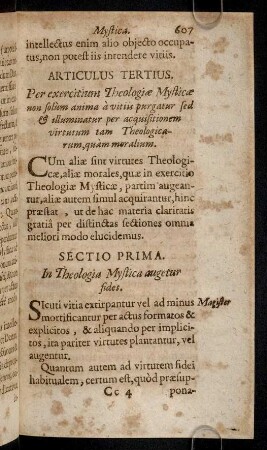 Mystica. 607
intellectus enim alio objecto occupa-
tus, non potest iis intendere vitiis.
ARTICULUS TERTIUS.
Per exercitium Theologiæ Mysticæ
non solùm anima à vitiis purgatur sed
& illuminatur per acquisitionem
virtutum tam Theologica-
rum, quàm moralium.
CUm aliæ sint virtutes Theologi-
cæ, aliæ morales, quæ in exercitio
Theologiæ Mysticæ, partim augean-
tur, aliæ autem simul acquirantur, hinc
præstat, ut de hac materia claritatis
gratiâ per distinctas sectiones omnia
meliori modo elucidemus.
SECTIO PRIMA.
In Theologia Mystica augetur
fides.
SIcuti vitia extirpantur vel ad minus Magister
mortificantur per actus formatos &
explicitos, & aliquando per implici-
tos, ita pariter virtutes plantantur, vel
augentur.
Quantum autem ad virtutem fidei
habitualem, certum est, quòd præsup-
Cc 4 pona-